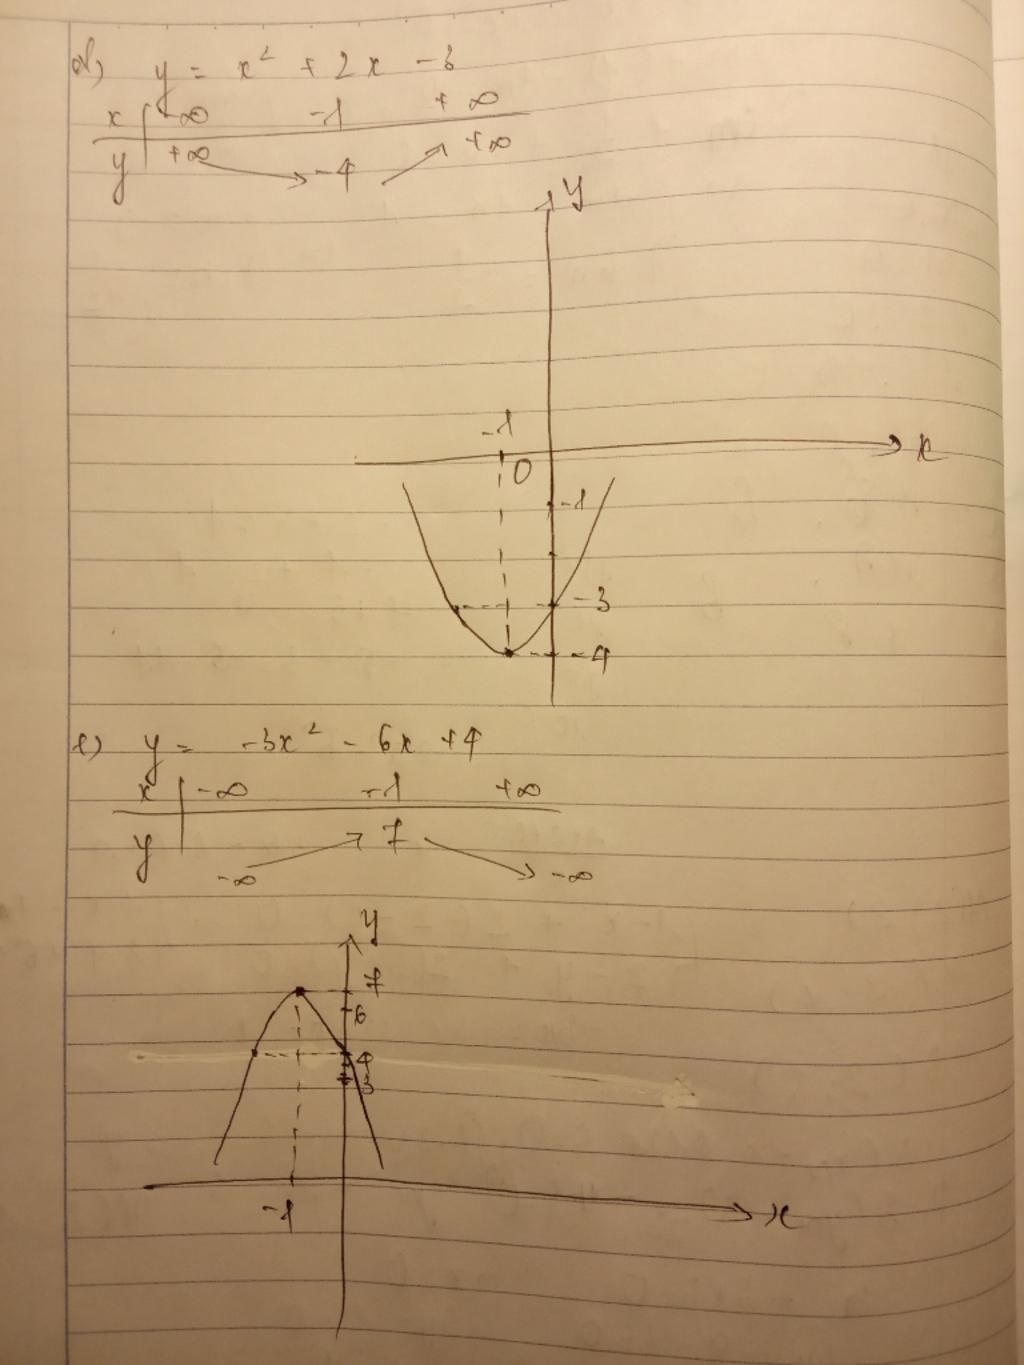 d) y = x² + 2x - 3
x -∞ -1 +∞
y +∞ -4 +∞
y
-1
x
0
-1
-3
-4
e) y = -3x² - 6x + 4
x -∞ -1 +∞
y 7
-∞ -∞
y
7
6
4
3
-1
x